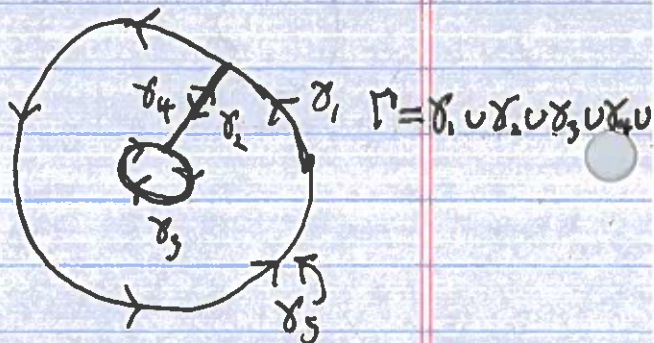 γ₄
γ₂
γ₁
Γ = γ₁ ∪ γ₂ ∪ γ₃ ∪ γ₄ ∪
γ₃
γ₅